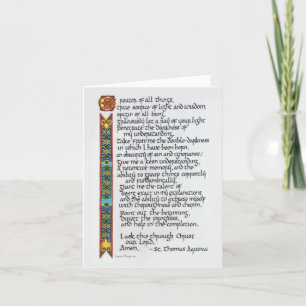 Creator of all things,
true source of light and wisdom,
origin of all being,
graciously let a ray of your light
penetrate the darkness of
my understanding.
Take from me the double darkness
in which I have been born,
an obscurity of sin and ignorance.
Give me a keen understanding,
a retentive memory, and the
ability to grasp things correctly
and fundamentally.
Grant me the talent of
being exact in my explanations
and the ability to express myself
with thoroughness and charm.
Point out the beginning,
direct the progress,
and help in the completion.
I ask this through Christ
our Lord.
Amen. -St. Thomas Aquinas